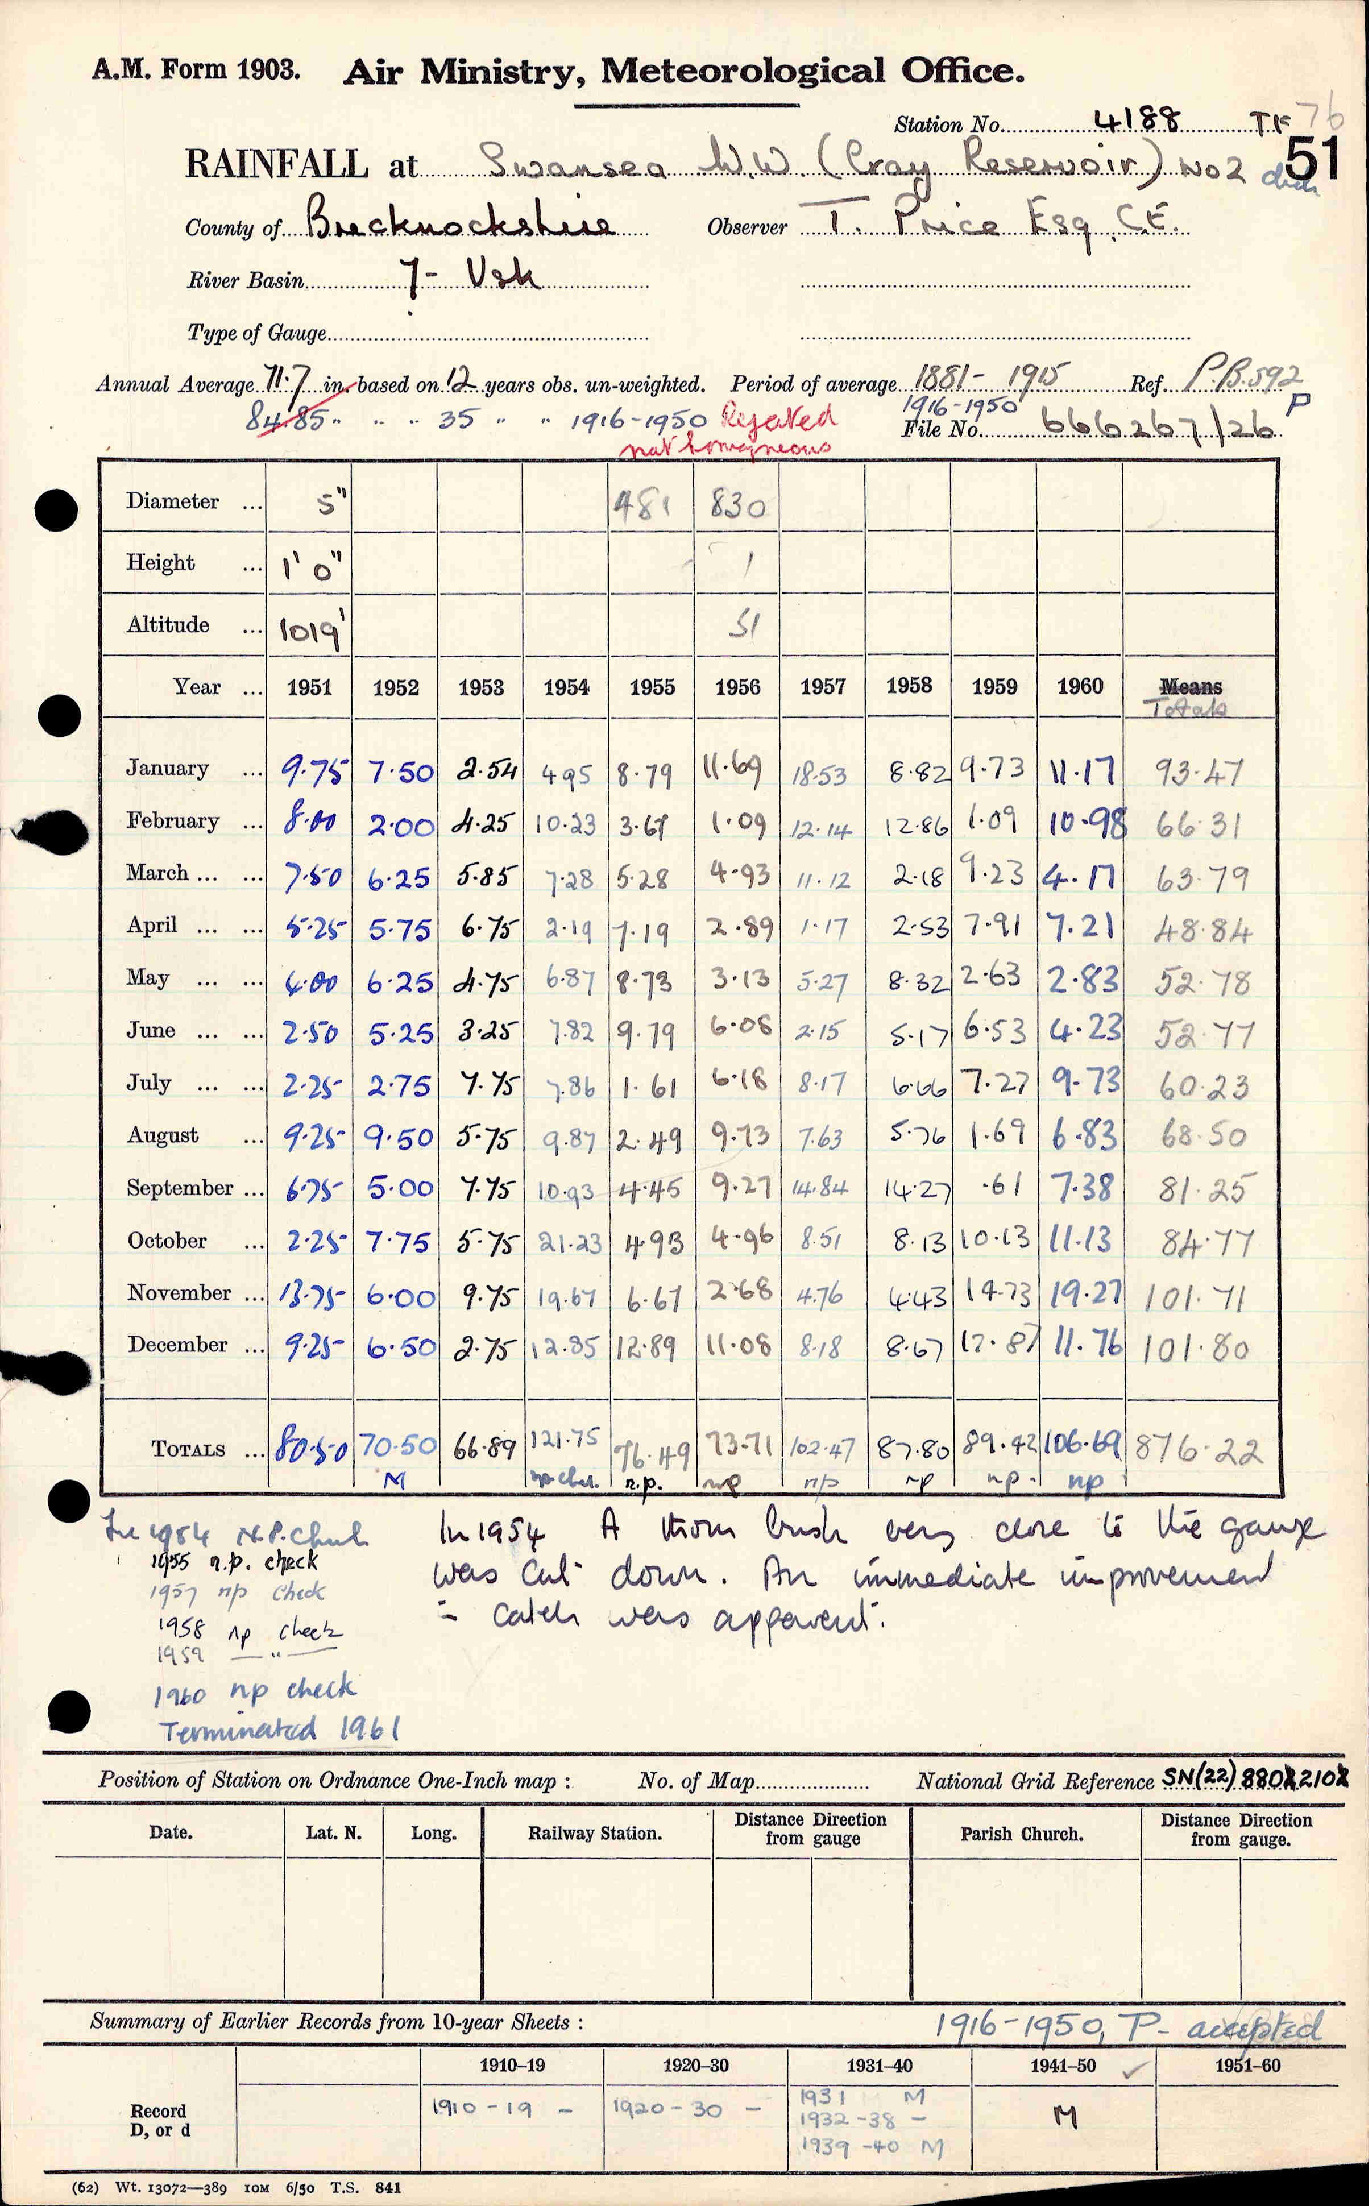 A.M. Form 1903. Air Ministry, Meteorological Office.
Station No. 4188 76
RAINFALL at Swansea W.W. (Cray Reservoir) No 2 51
County of Brecknockshire Observer T. Price Esq. C.E.
River Basin 7- Usk
Type of Gauge
Annual Average 71.7 in. based on 12 years obs. un-weighted. Period of average 1881 - 1915 Ref. P.B.592
84.85 " " " 35 " " 1916-1950 Rejected 1916-1950 P
not homogneous File No. 666267/26
Diameter ... 5" 481 830
Height ... 1' 0" 1
Altitude ... 1019' 51
Year ... 1951 1952 1953 1954 1955 1956 1957 1958 1959 1960 Means
Totals
January ... 9.75 7.50 2.54 4.95 8.79 11.69 18.53 8.82 9.73 11.17 93.47
February ... 8.00 2.00 4.25 10.23 3.67 1.09 12.14 12.86 1.09 10.98 66.31
March ... ... 7.50 6.25 5.85 7.28 5.28 4.93 11.12 2.18 9.23 4.17 63.79
April ... ... 5.25 5.75 6.75 2.19 7.19 2.89 1.17 2.53 7.91 7.21 48.84
May ... ... 4.00 6.25 4.75 6.87 8.73 3.13 5.27 8.32 2.63 2.83 52.78
June ... ... 2.50 5.25 3.25 7.82 9.79 6.08 2.15 5.17 6.53 4.23 52.77
July ... ... 2.25 2.75 7.75 7.86 1.61 6.18 8.17 6.66 7.27 9.73 60.23
August ... 9.25 9.50 5.75 9.87 2.49 9.73 7.63 5.76 1.69 6.83 68.50
September ... 6.75 5.00 7.75 10.93 4.45 9.27 14.84 14.27 .61 7.38 81.25
October ... 2.25 7.75 5.75 21.23 4.93 4.96 8.51 8.13 10.13 11.13 84.77
November ... 13.75 6.00 9.75 19.67 6.67 2.68 4.76 4.43 14.73 19.27 101.71
December ... 9.25 6.50 2.75 12.85 12.89 11.08 8.18 8.67 17.87 11.76 101.80
TOTALS ... 80.50 70.50 66.89 121.75 76.49 73.71 102.47 87.80 89.42 106.69 876.22
M np chec. n.p. np n/p np np. np
In 1954 A thorn bush very close to the gauge
was cut down. An immediate improvement
= catch was apparent.
1954 N.P. check
1955 n.p. check
1957 np check
1958 np check
1959 — " —
1960 np check
Terminated 1961
Position of Station on Ordnance One-Inch map : No. of Map National Grid Reference SN(22) 880 210
Date. Lat. N. Long. Railway Station. Distance Direction from gauge Parish Church. Distance Direction from gauge.
Summary of Earlier Records from 10-year Sheets : 1916-1950, P- accepted
1910–19 1920–30 1931–40 1941–50 ✓ 1951–60
Record D, or d
1910 - 19 - 1920 - 30 - 1931 M M
1932 - 38 -
1939 - 40 M
(62) Wt. 13072—389 10M 6/50 T.S. 841